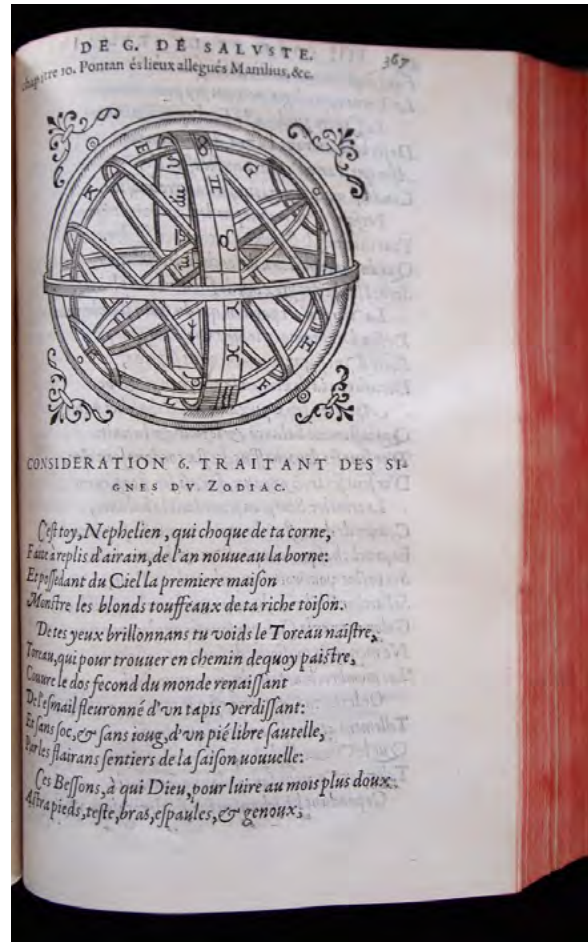 DE G. DE SALVSTE. 367
chapitre 10. Pontan és lieux allegués Manilius, &c.
CONSIDERATION 6. TRAITANT DES SI-
GNES DV ZODIAC.
C'est toy, Nephelien, qui choque de ta corne,
à replis d'airain, de l'an nouueau la borne:
Et possedant du Ciel la premiere maison
Monstre les blonds touffeaux de ta riche toison.
De tes yeux brillonnans tu voids le Toreau naistre,
Toreau, qui pour trouuer en chemin dequoy paistre,
Couure le dos fecond du monde renaissant
De l'esmail fleuronné d'vn tapis verdissant:
Et sans soc, & sans ioug, d'vn pié libre sautelle,
Par les flairans sentiers de la saison nouuelle:
Ces Bessons, à qui Dieu, pour luire au mois plus doux,
Astra pieds, teste, bras, espaules, & genoux;